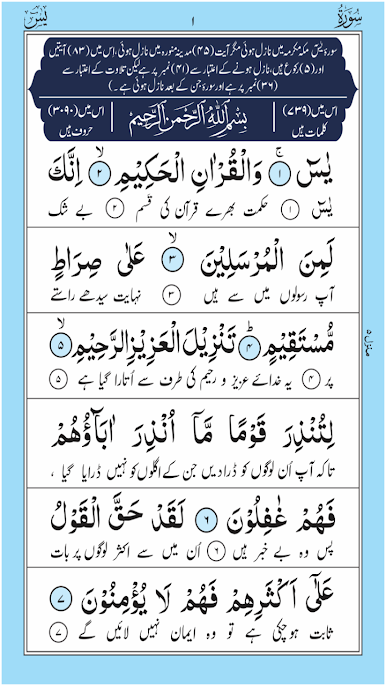 سُوْرَةُ ۱ يٰسٓ
سورۂ یٰسٓ مکہ مکرمہ میں نازل ہوئی مگر آیت (۴۵) مدینہ منورہ میں نازل ہوئی، اس میں (۸۳) آیتیں
اور (۵) رکوع ہیں، نازل ہونے کے اعتبار سے (۴۱) نمبر پر ہے لیکن تلاوت کے اعتبار سے
(۳۶) نمبر پر ہے اور سورۂ جن کے بعد نازل ہوئی ہے۔)
اس میں (۷۳۹) کلمات ہیں
بِسْمِ اللّٰهِ الرَّحْمٰنِ الرَّحِيْمِ
اس میں (۳۰۹۰) حروف ہیں
يٰسٓ ۚ ۱ وَالْقُرْاٰنِ الْحَكِيْمِ ۙ ۲ اِنَّكَ
یٰسٓ ۱ حکمت بھرے قرآن کی قسم ۲ بے شک
لَمِنَ الْمُرْسَلِيْنَ ۙ ۳ عَلٰى صِرَاطٍ
آپ رسولوں میں سے ہیں ۳ نہایت سیدھے راستے
مُّسْتَقِيْمٍ ؕ ۴ تَنْزِيْلَ الْعَزِيْزِ الرَّحِيْمِ ۙ ۵
پر ۴ یہ خدائے عزیز و رحیم کی طرف سے اُتارا گیا ہے ۵
منزل ۵
لِتُنْذِرَ قَوْمًا مَّاۤ اُنْذِرَ اٰبَآؤُهُمْ
تاکہ آپ اُن لوگوں کو ڈرادیں جن کے اگلوں کو نہیں ڈرایا گیا ،
فَهُمْ غٰفِلُوْنَ ۶ لَقَدْ حَقَّ الْقَوْلُ
پس وہ بے خبر ہیں ۶ اُن میں سے اکثر لوگوں پر بات
عَلٰۤى اَكْثَرِهِمْ فَهُمْ لَا يُؤْمِنُوْنَ ۷
ثابت ہوچکی ہے تو وہ ایمان نہیں لائیں گے ۷